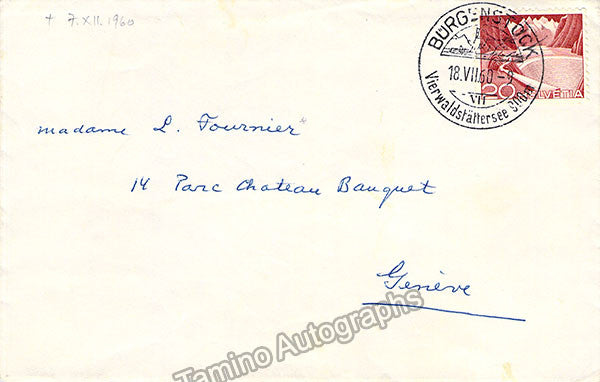 † 7.XII.1960
BÜRGENSTOCK
18.VII.60-9
VII
Vierwaldstättersee 900m
20
HELVETIA
Madame L. Fournier
14 Parc Chateau Banquet
Genève
Tamino Autographs